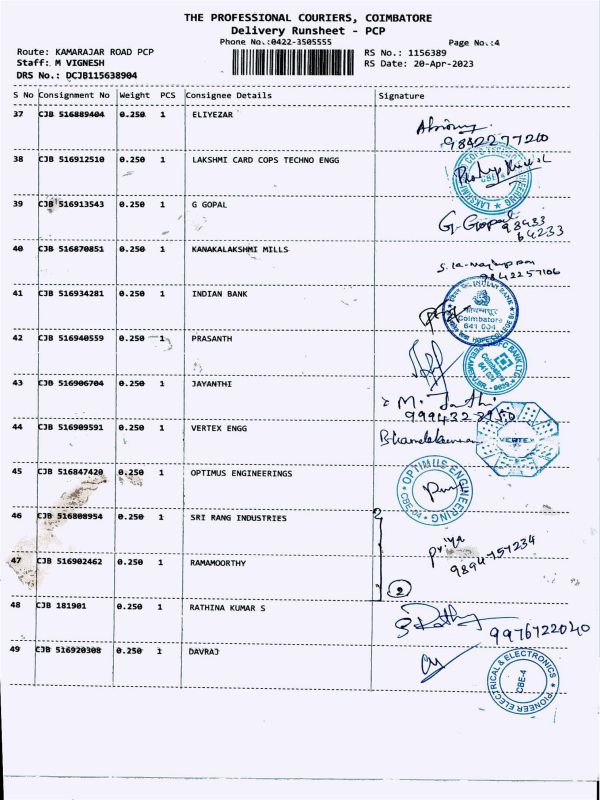 THE PROFESSIONAL COURIERS, COIMBATORE
Delivery Runsheet - PCP
Phone No.:0422-3505555
Page No.:4
Route: KAMARAJAR ROAD PCP
RS No.: 1156389
Staff: M VIGNESH
RS Date: 20-Apr-2023
DRS No.: DCJB115638904
S No Consignment No Weight PCS Consignee Details Signature
37 CJB 516889404 0.250 1 ELIYEZAR
9842277200
38 CJB 516912510 0.250 1 LAKSHMI CARD COPS TECHNO ENGG
CBE
39 CJB 516913543 0.250 1 G GOPAL
G. Gopal 98433
64233
40 CJB 516870851 0.250 1 KANAKALAKSHMI MILLS
9842257106
41 CJB 516934281 0.250 1 INDIAN BANK
INDIAN BANK
Coimbatore
641 004
HOPE COLLEGE
42 CJB 516940559 0.250 1 PRASANTH
HDFC BANK LTD.
Coimbatore
43 CJB 516906704 0.250 1 JAYANTHI
M.
44 CJB 516909591 0.250 1 VERTEX ENGG
VERTEX
45 CJB 516847420 0.250 1 OPTIMUS ENGINEERINGS
OPTIMUS ENGINEERING
CBE-04
46 CJB 516808954 0.250 1 SRI RANG INDUSTRIES
Priya
9894757234
47 CJB 516902462 0.250 1 RAMAMOORTHY
2
48 CJB 181901 0.250 1 RATHINA KUMAR S
9976722040
49 CJB 516920308 0.250 1 DAVRAJ
PIONEER ELECTRICAL & ELECTRONICS
CBE-4